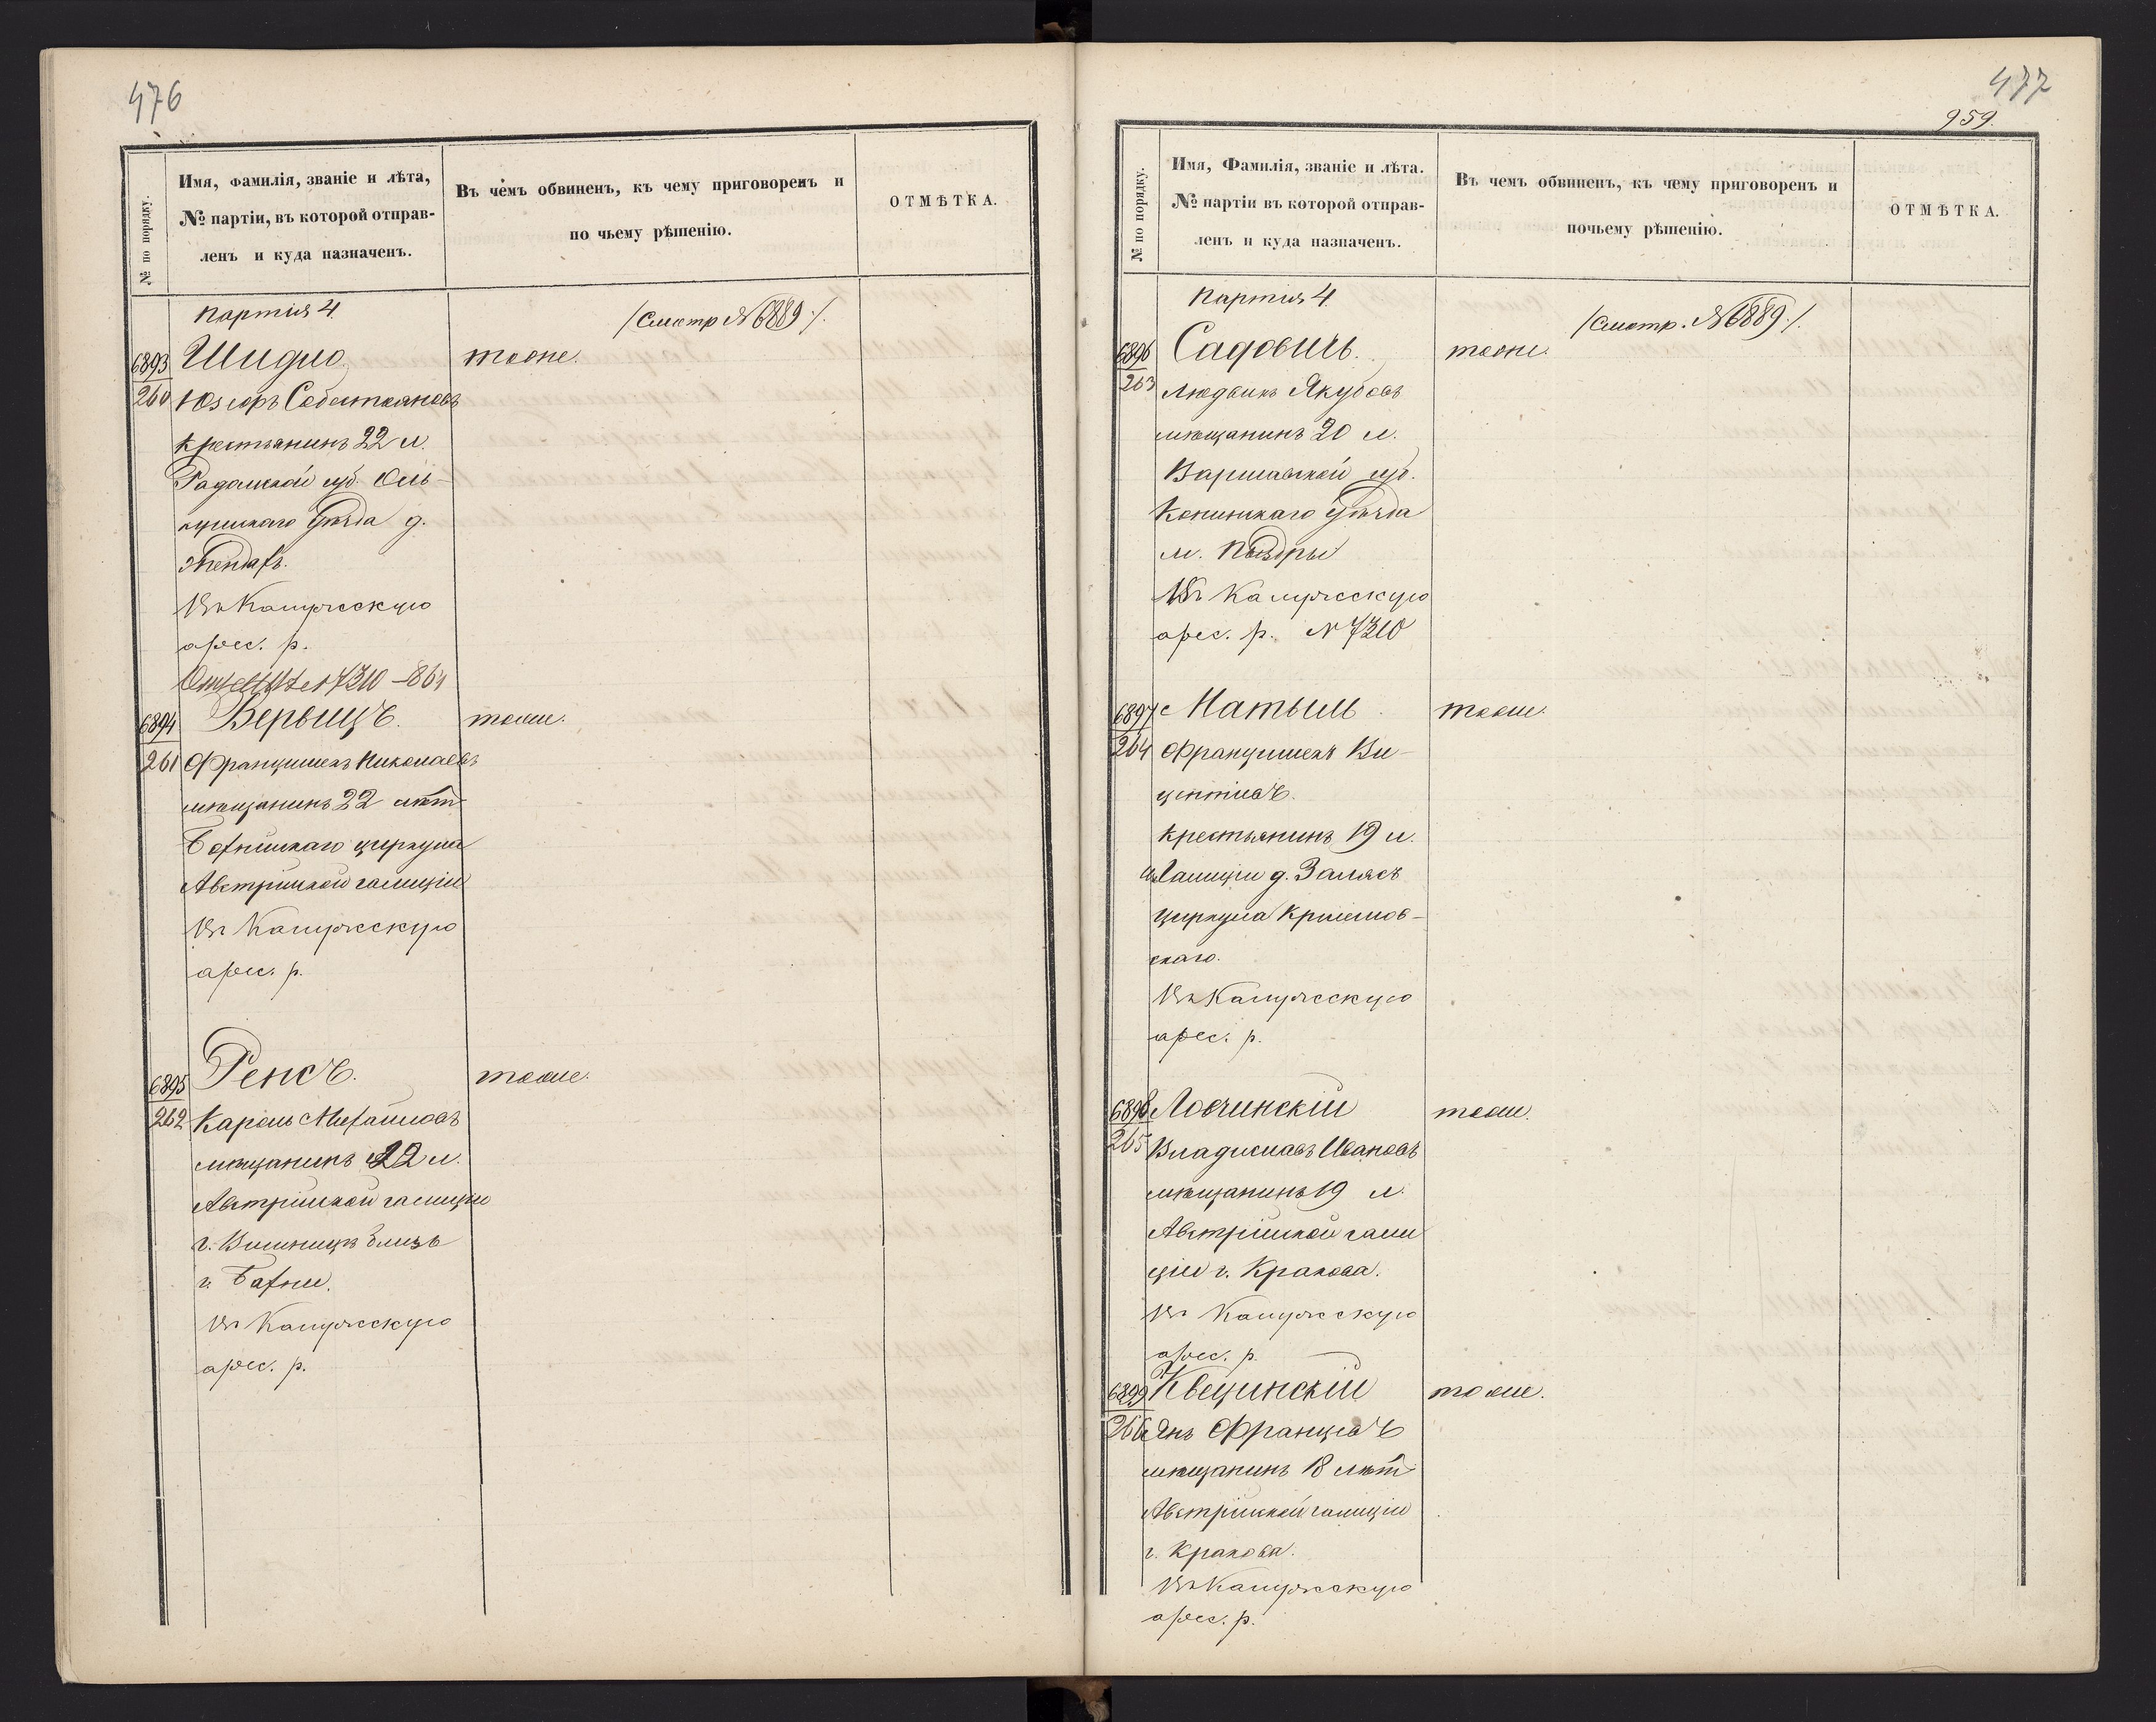 476
№ по порядку.
Имя, фамилія, званіе и лѣта,
№ партіи, въ которой отправ-
ленъ и куда назначенъ.
Въ чемъ обвиненъ, къ чему приговоренъ и
по чьему рѣшенію.
ОТМѢТКА.
Партія 4.
/Смотр № 6889./.
6893
260
Шидло.
тоже.
Юзефъ Себестьяновъ
крестьянинъ 22 л.
Радомской губ. Оль-
кушскаго Уѣзда д.
Въ Калужскую
арес. р.
№ 7310 - 864
6894
261
Вервицъ.
тоже.
Францишекъ Николаевъ
мѣщанинъ 22 лѣтъ
Бохнинскаго циркула
Австрійской галиціи
Въ Калужскую
арес. р.
6895
262
Ренсъ.
тоже.
Кароль Михайловъ
мѣщанинъ 22 л.
Австрійской галиціи
г. Вишницъ близь
г. Бахни.
Въ Калужскую
арес. р.
477
959.
№ по порядку.
Имя, Фамилія, званіе и лѣта.
№ партіи въ которой отправ-
ленъ и куда назначенъ.
Въ чемъ обвиненъ, къ чему приговоренъ и
почьему рѣшенію.
ОТМѢТКА.
Партія 4.
/Смотр. № 6889./.
6896
263
Садовичь.
тоже.
Людвикъ Якубовъ
мѣщанинъ 20 л.
Варшавской губ.
Конинскаго Уѣзда
м. Пыздры
Въ Калужскую
арес. р. № 7310
6897
264
Матыль.
тоже.
Францишекъ Ви-
центіевъ.
крестьянинъ 19 л.
Галиціи д. Залясъ
циркула
скаго.
Въ Калужскую
арес. р.
6898
265
Ловчинскій
тоже.
Владиславъ Ивановъ
мѣщанинъ 19 л.
Австрійской гали
ціи г. Кракова.
Въ Калужскую
арес. р.
6899
266
Квецинскій
тоже.
Янъ Францовъ
мѣщанинъ 18 лѣтъ
Австрійской галиціи
г. Кракова.
Въ Калужскую
арес. р.